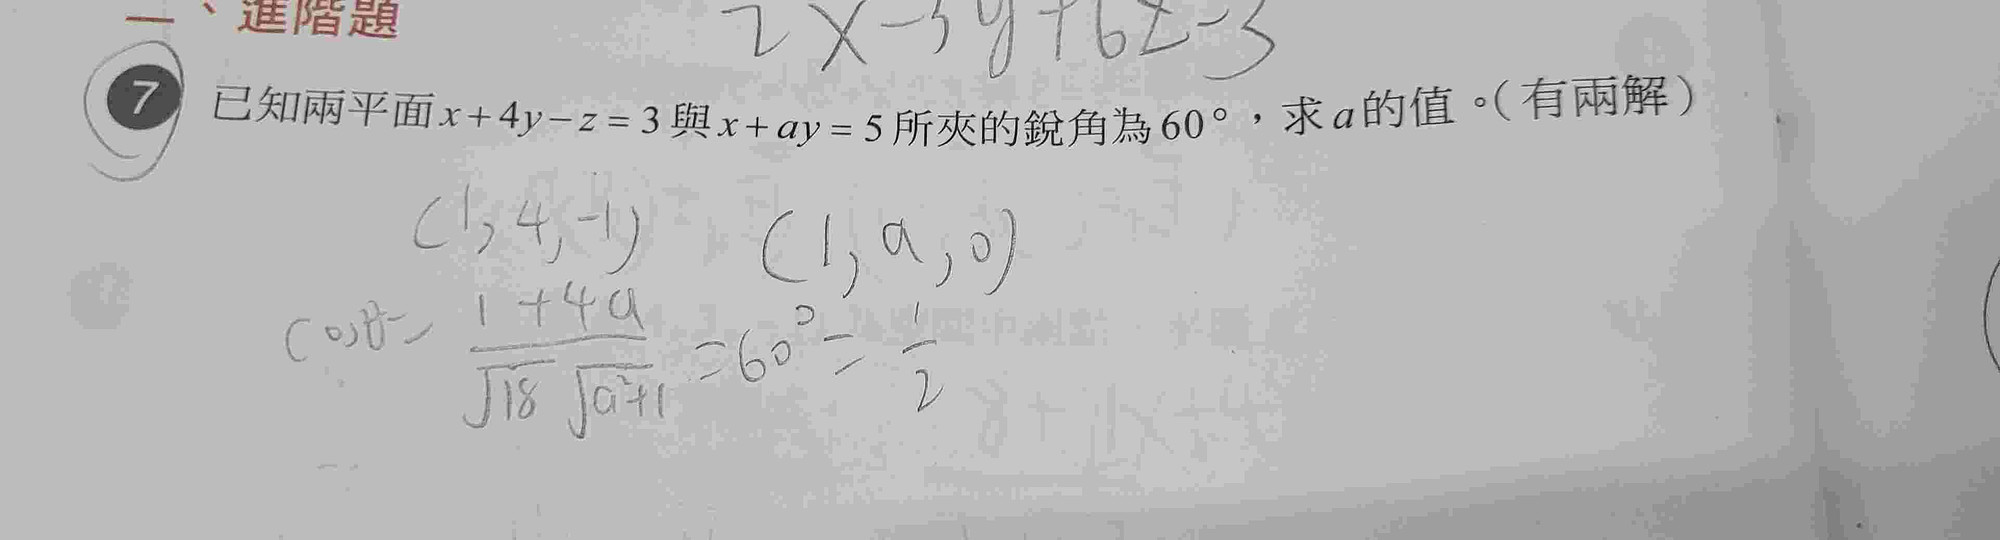 一、進階題
2x-3y+6z-3
7 已知兩平面x+4y-z=3與x+ay=5所夾的銳角為60°,求a的值。(有兩解)
(1,4,-1) (1,a,0)
cosθ= 1+4a / √18 √a²+1 =60°= 1/2